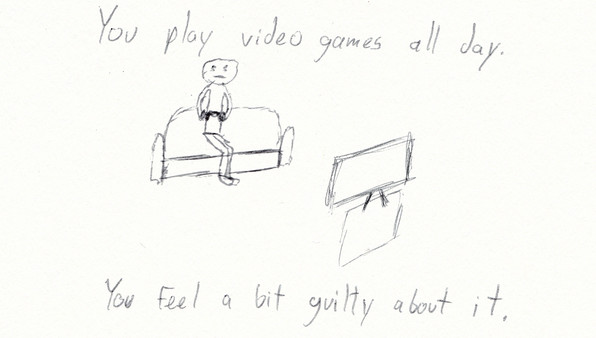 You play video games all day.
You feel a bit guilty about it.